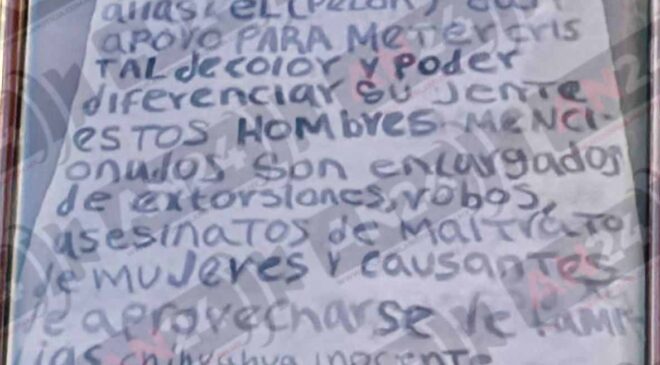 alias: EL (PELON) 
APOYO PARA METER CRIS
TAL de color y poder
diferenciar su jente
ESTOS HOMbres MENCI-
onados son encargados
de extorsiones, robos,
asesinatos de Maltrato
de mujeres y causantes
de aprovecharse de fami
lias chihuahua inocente